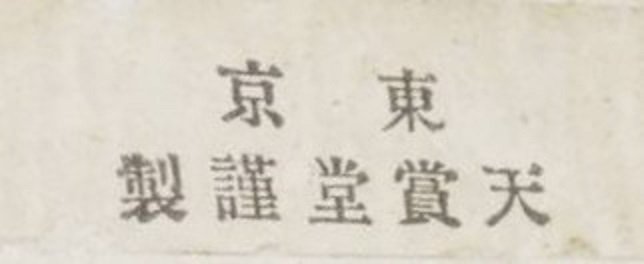 東京
天賞堂謹製